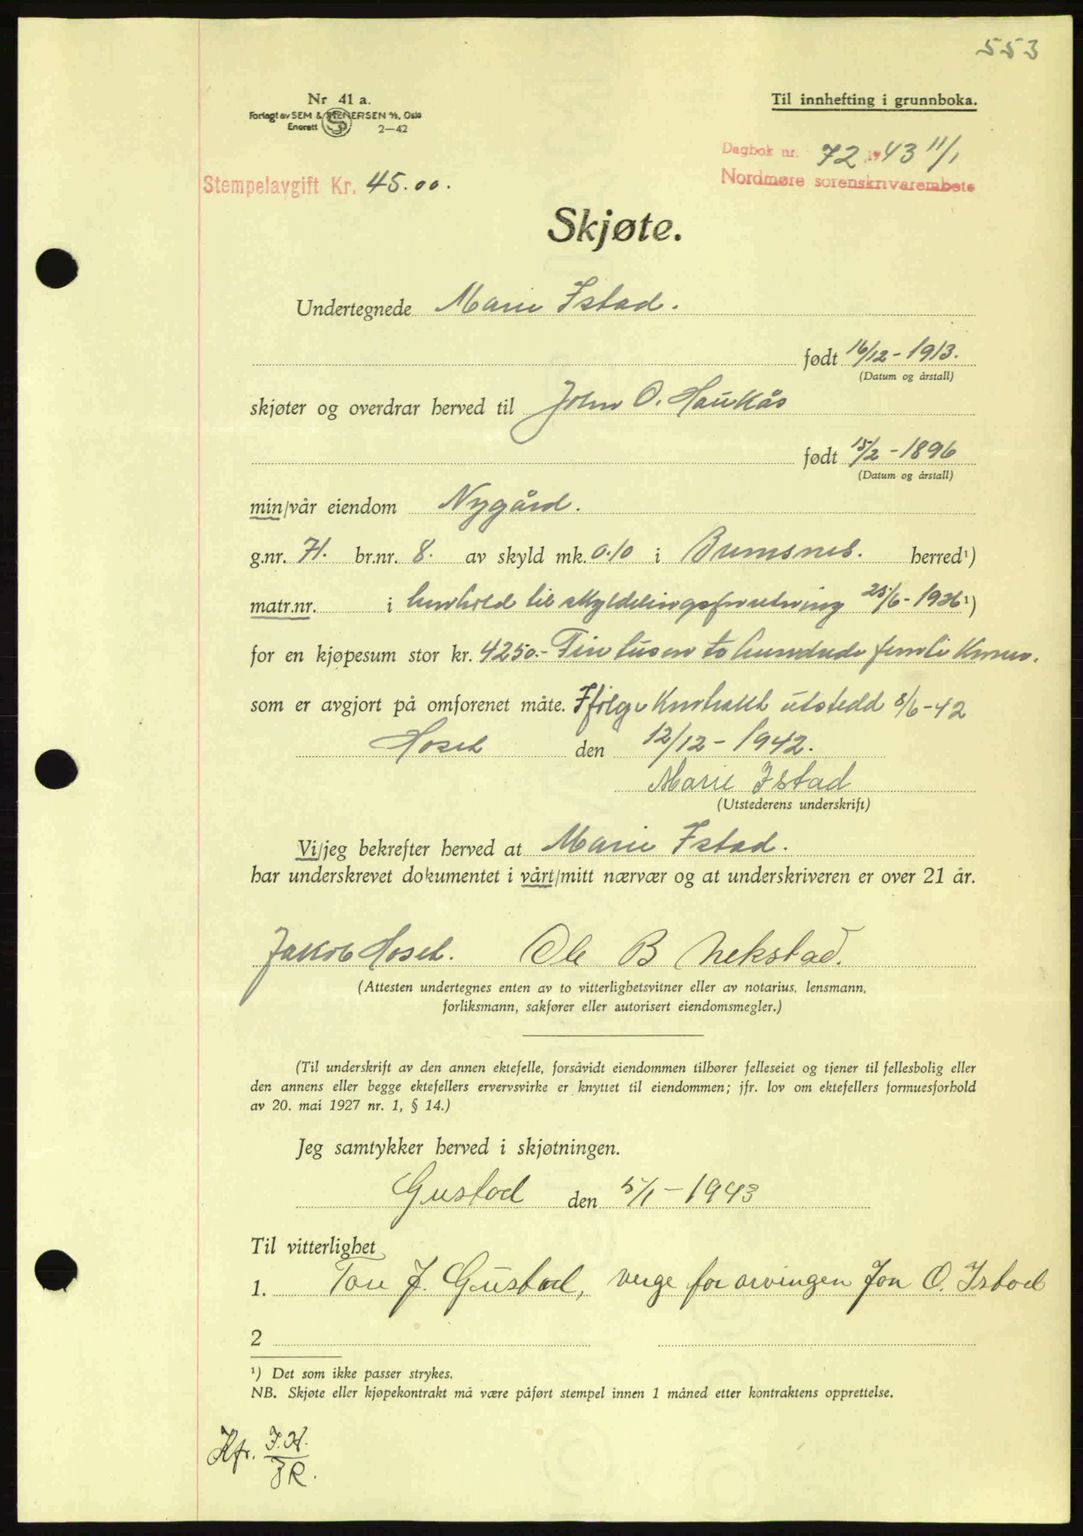 553
Nr 41 a.
Forlagt av SEM & STENERSEN A/S, Oslo
Enerett 2—42
Til innhefting i grunnboka.
Dagbok nr. 72 1943 11/1
Nordmøre sorenskrivarembete
Stempelavgift Kr. 45.00.
Skjøte.
Undertegnede Marie Istad.
født 16/12 - 1913.
(Datum og årstall)
skjøter og overdrar herved til John O. Haukås
født 15/2 - 1896
(Datum og årstall)
min/vår eiendom Nygård.
g.nr. 71. br.nr. 8. av skyld mk. 0.10 i Bremsnes. herred¹)
matr.nr. i henhold til skyldelingsforretning 25/6 - 1926¹)
for en kjøpesum stor kr. 4250.- Fire tusen to hundrede femti Kroner.
som er avgjort på omforenet måte. Ifølge Kontrakt utstedd 8/6-42
Hoset den 12/12 - 1942.
Marie Istad
(Utstederens underskrift)
Vi/jeg bekrefter herved at Marie Istad.
har underskrevet dokumentet i vårt/mitt nærvær og at underskriveren er over 21 år.
Jakob Hoset. Ole B Nekstad.
(Attesten undertegnes enten av to vitterlighetsvitner eller av notarius, lensmann,
forliksmann, sakfører eller autorisert eiendomsmegler.)
(Til underskrift av den annen ektefelle, forsåvidt eiendommen tilhører felleseiet og tjener til fellesbolig eller
den annens eller begge ektefellers ervervsvirke er knyttet til eiendommen; jfr. lov om ektefellers formuesforhold
av 20. mai 1927 nr. 1, § 14.)
Jeg samtykker herved i skjøtningen.
Gustad den 5/1 - 1943
Til vitterlighet
1. Tore J. Gustad, verge for arvingen Jon O. Istad
2
¹) Det som ikke passer strykes.
NB. Skjøte eller kjøpekontrakt må være påført stempel innen 1 måned etter kontraktens opprettelse.
Kfr. J.H.
JR.